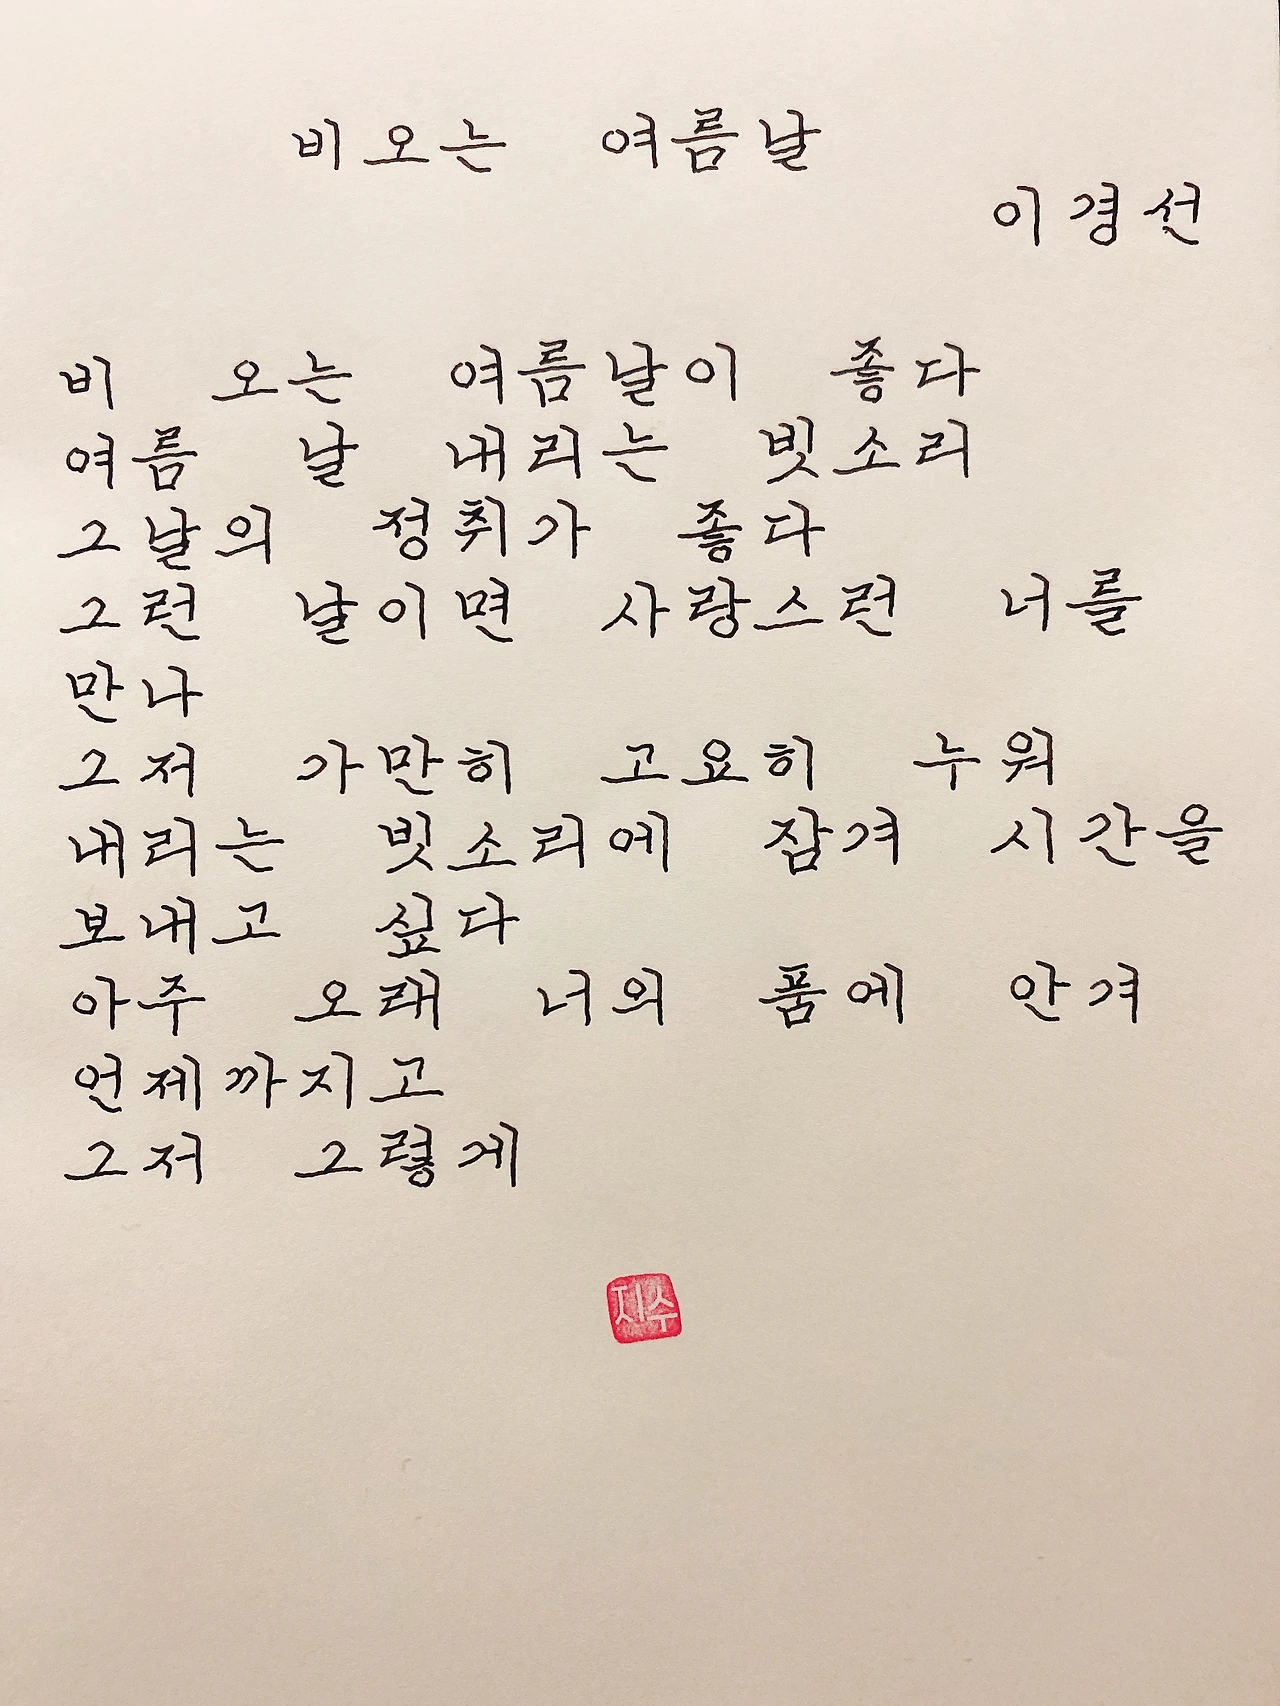 비오는 여름날
이경선
비 오는 여름날이 좋다
여름 날 내리는 빗소리
그날의 정취가 좋다
그런 날이면 사랑스런 너를
만나
그저 가만히 고요히 누워
내리는 빗소리에 잠겨 시간을
보내고 싶다
아주 오래 너의 품에 안겨
언제까지고
그저 그렇게
지수